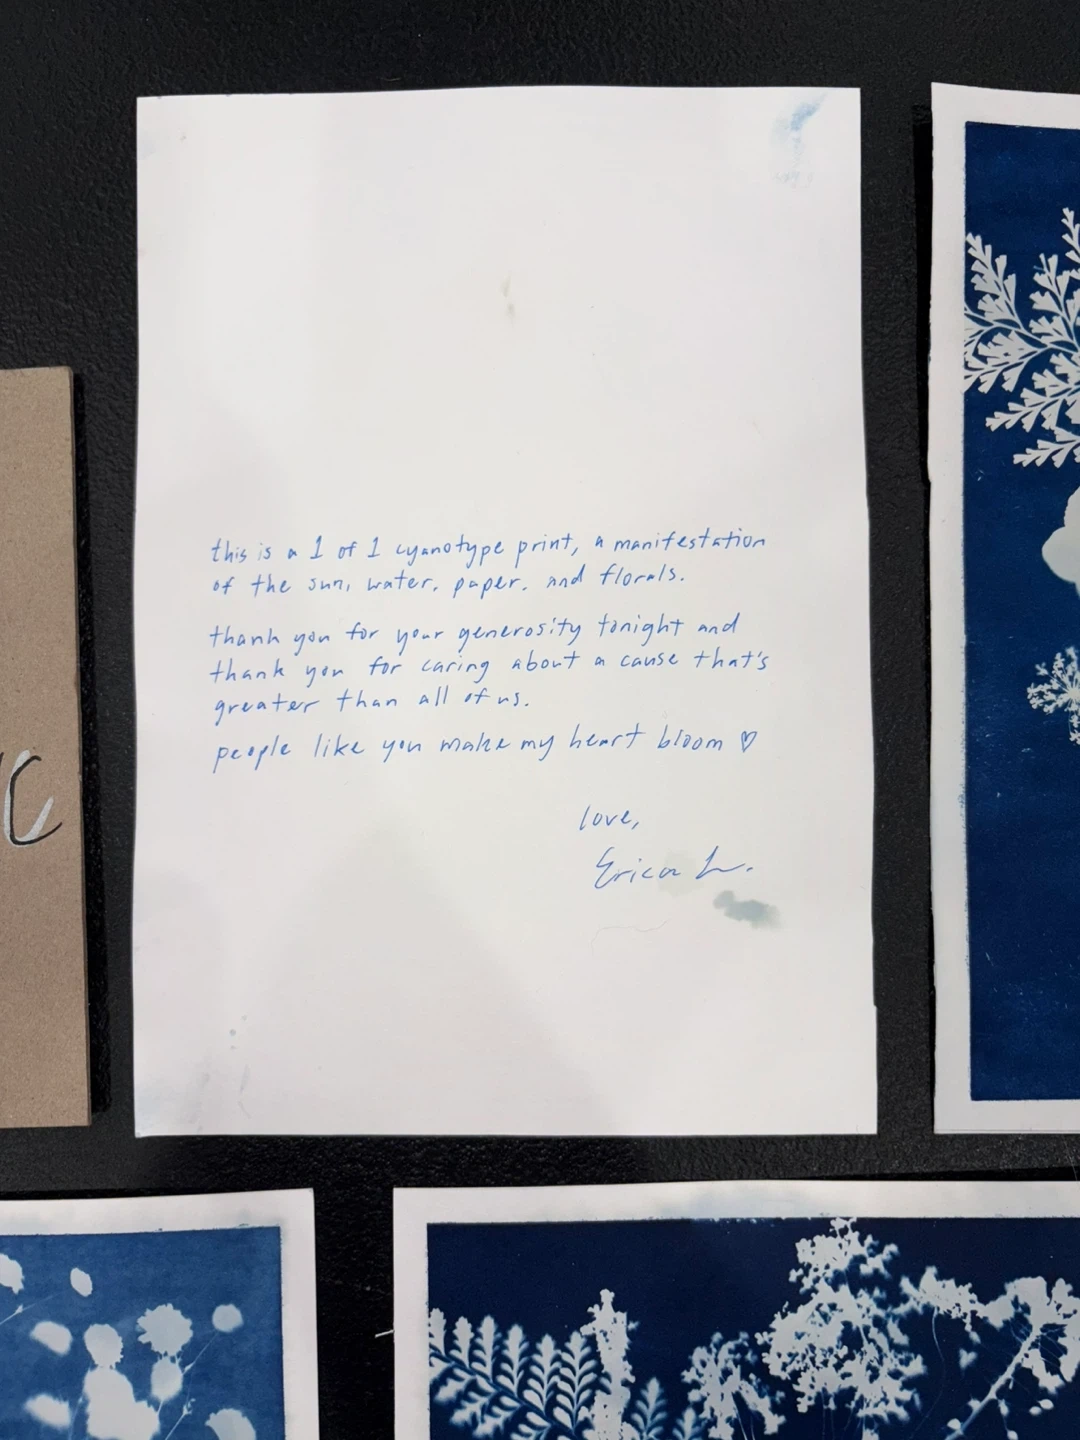 this is a 1 of 1 cyanotype print, a manifestation
of the sun, water, paper, and florals.
thank you for your generosity tonight and
thank you for caring about a cause that's
greater than all of us.
people like you make my heart bloom ♡
love,
Erica L.